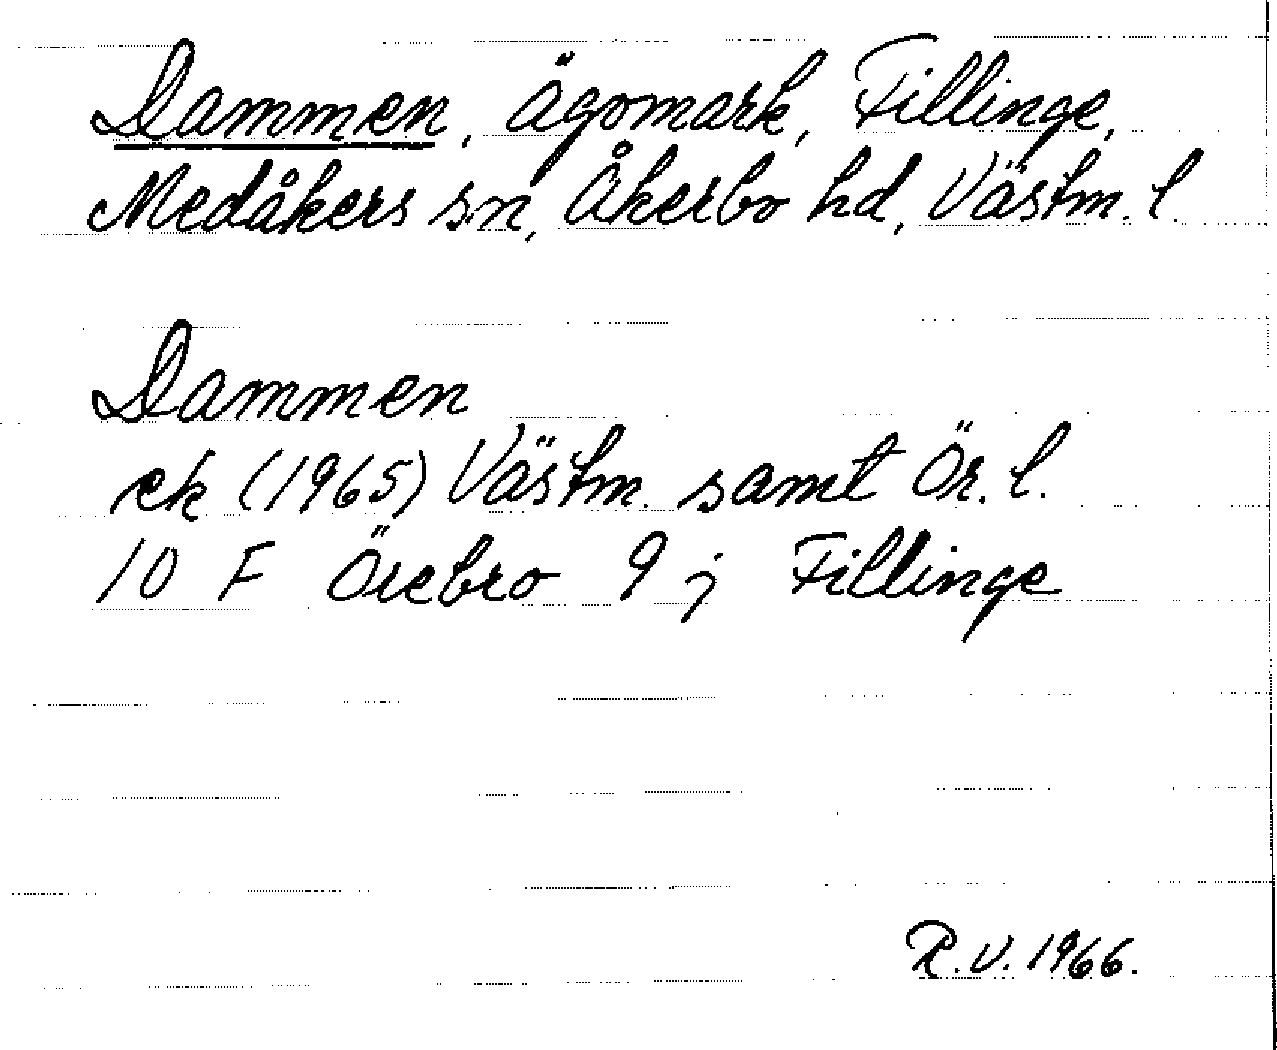 Dammen, Ägomark, Fillinge,
Medåkers sn, Åkerbo hd, Västm. l.
Dammen
ek (1965) Västm. samt Ör. l.
10 F Örebro 9 j Fillinge
R.V. 1966.